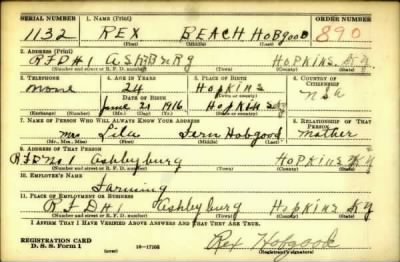 SERIAL NUMBER 1. NAME (Print) ORDER NUMBER
1132 REX BEACH HOBGOOD 890
(First) (Middle) (Last)
2. ADDRESS (Print)
RFD#1 ASHBURG HOPKINS. KY
(Number and street or R. F. D. number) (Town) (County) (State)
3. TELEPHONE 4. AGE IN YEARS 5. PLACE OF BIRTH 6. COUNTRY OF CITIZENSHIP
none 24 Hopkins
DATE OF BIRTH (Town or county)
June 21 1916 Hopkins Ky USA
(Exchange) (Number) (Mo.) (Day) (Yr.) (State or country)
7. NAME OF PERSON WHO WILL ALWAYS KNOW YOUR ADDRESS 8. RELATIONSHIP OF THAT PERSON
Mrs Lila Fern Hobgood Mother
(Mr., Mrs., Miss) (First) (Middle) (Last)
9. ADDRESS OF THAT PERSON
RFD No 1 Ashbyburg HOPKINS KY
(Number and street or R. F. D. number) (Town) (County) (State)
10. EMPLOYER'S NAME
Farming
11. PLACE OF EMPLOYMENT OR BUSINESS
RFD#1 Ashbyburg Hopkins Ky
(Number and street or R. F. D. number) (Town) (County) (State)
I AFFIRM THAT I HAVE VERIFIED ABOVE ANSWERS AND THAT THEY ARE TRUE.
REGISTRATION CARD
D. S. S. Form 1 16-17105 Rex Hobgood
(Registrant's signature)